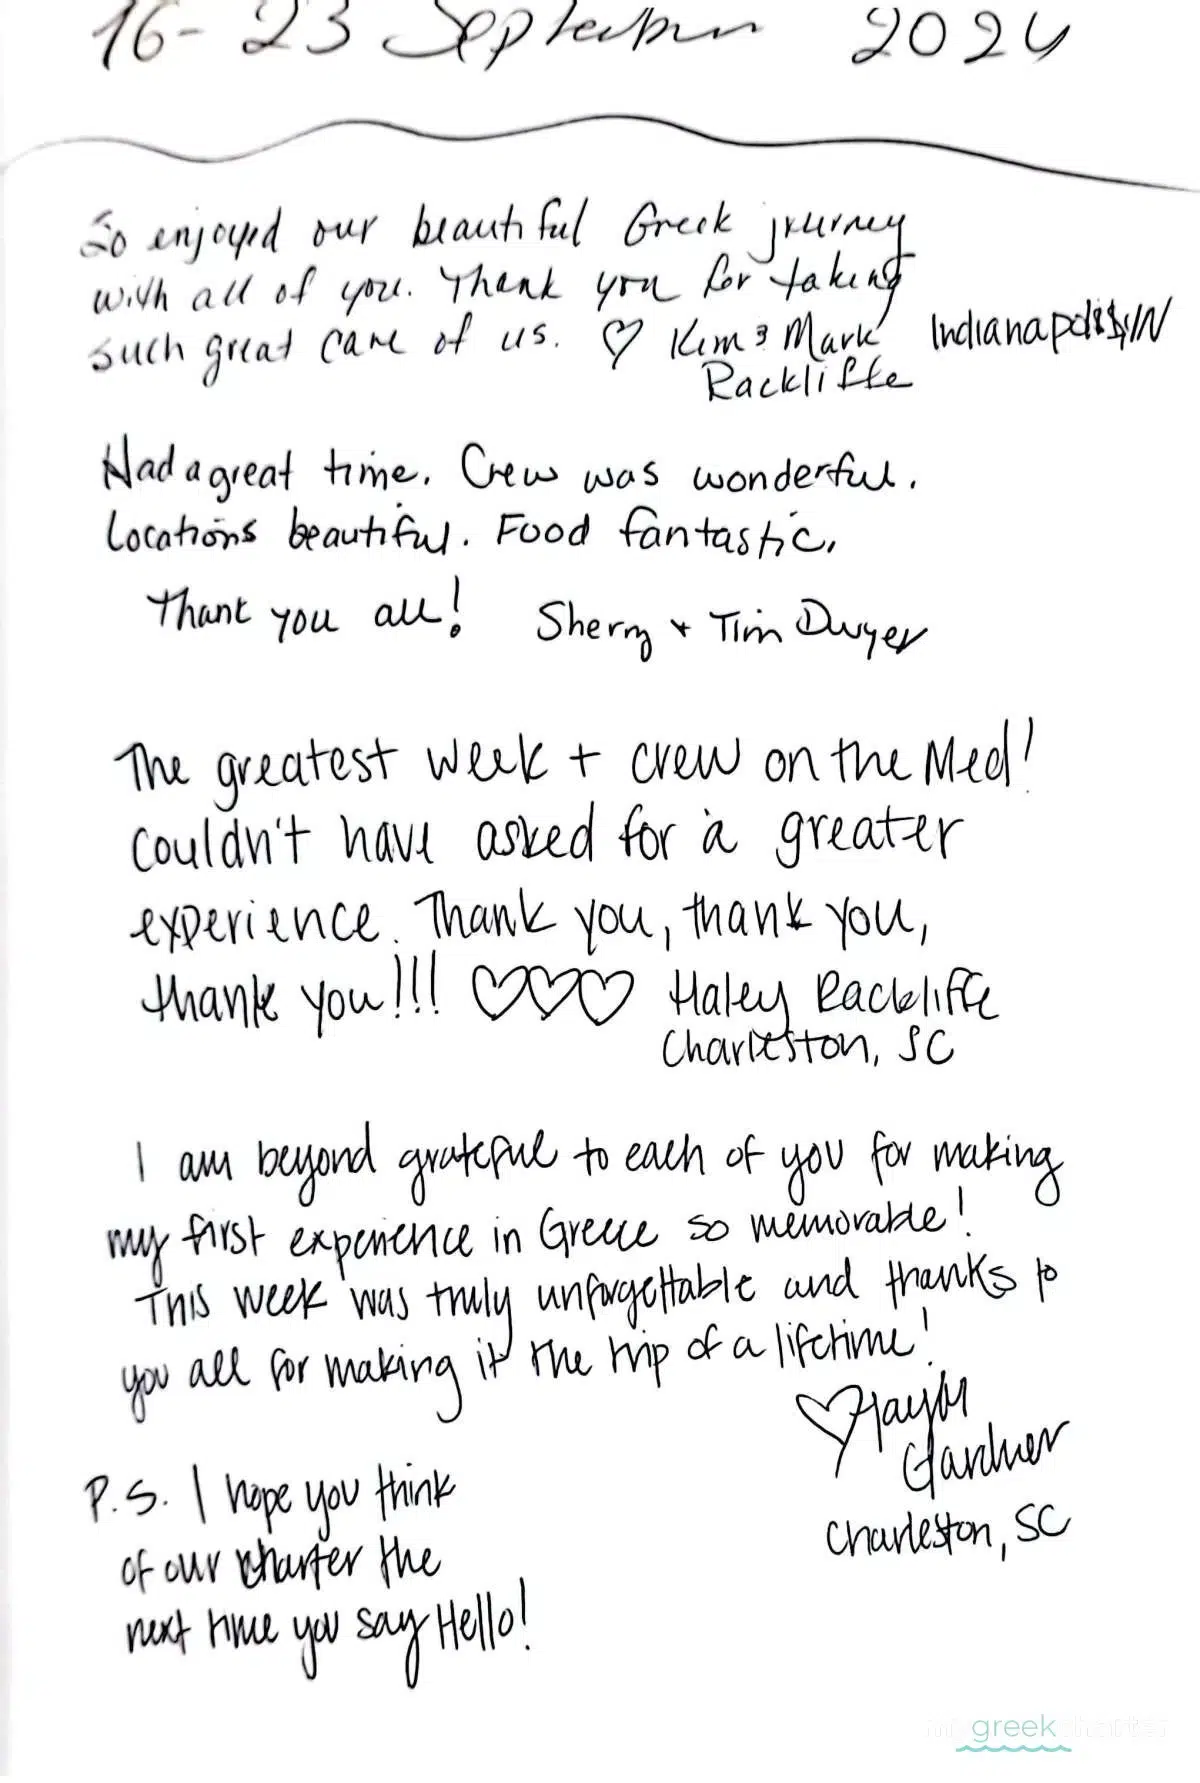 16-23 September 2024
So enjoyed our beautiful Greek journey
with all of you. Thank you for taking
such great care of us. ♡ Kim & Mark Indianapolis, IN
Rackliffe
Had a great time. Crew was wonderful.
Locations beautiful. Food fantastic.
Thank you all! Sherry + Tim Dwyer
The greatest week + crew on the Med!
Couldn't have asked for a greater
experience. Thank you, thank you,
thank you!!! ♡♡♡ Haley Rackliffe
Charleston, SC
I am beyond grateful to each of you for making
my first experience in Greece so memorable!
This week was truly unforgettable and thanks to
you all for making it the trip of a lifetime!
♡
Gardner
Charleston, SC
P.S. I hope you think
of our charter the
next time you say Hello!
my greek charter